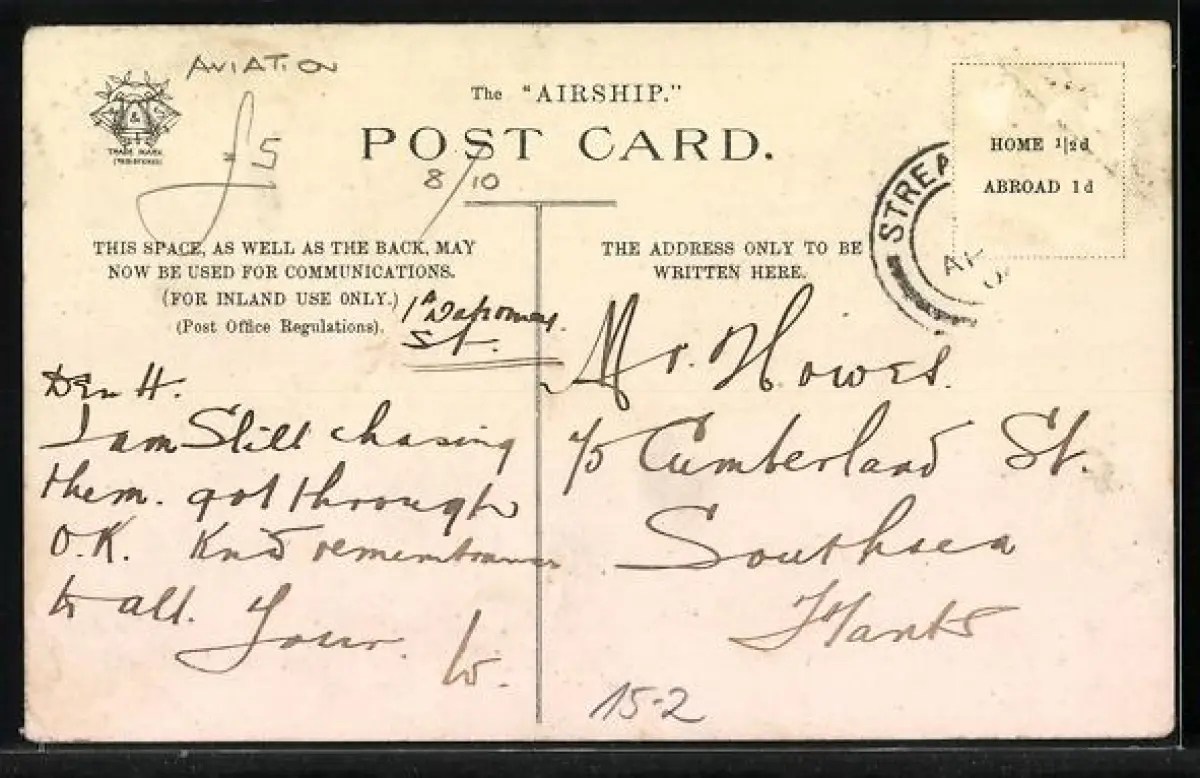 AVIATION
£5
The "AIRSHIP."
POST CARD.
8/10
TRADE MARK
(REGISTERED)
HOME 1/2d
ABROAD 1d
STREA
THIS SPACE, AS WELL AS THE BACK, MAY
NOW BE USED FOR COMMUNICATIONS.
(FOR INLAND USE ONLY.)
(Post Office Regulations).
THE ADDRESS ONLY TO BE
WRITTEN HERE.
St.
Dear H.
I am Still chasing
them. got through
O.K. Kind remembrances
to all. Your
W.
Mr. Howes.
Cumberland St.
Southsea
Hants
15-2